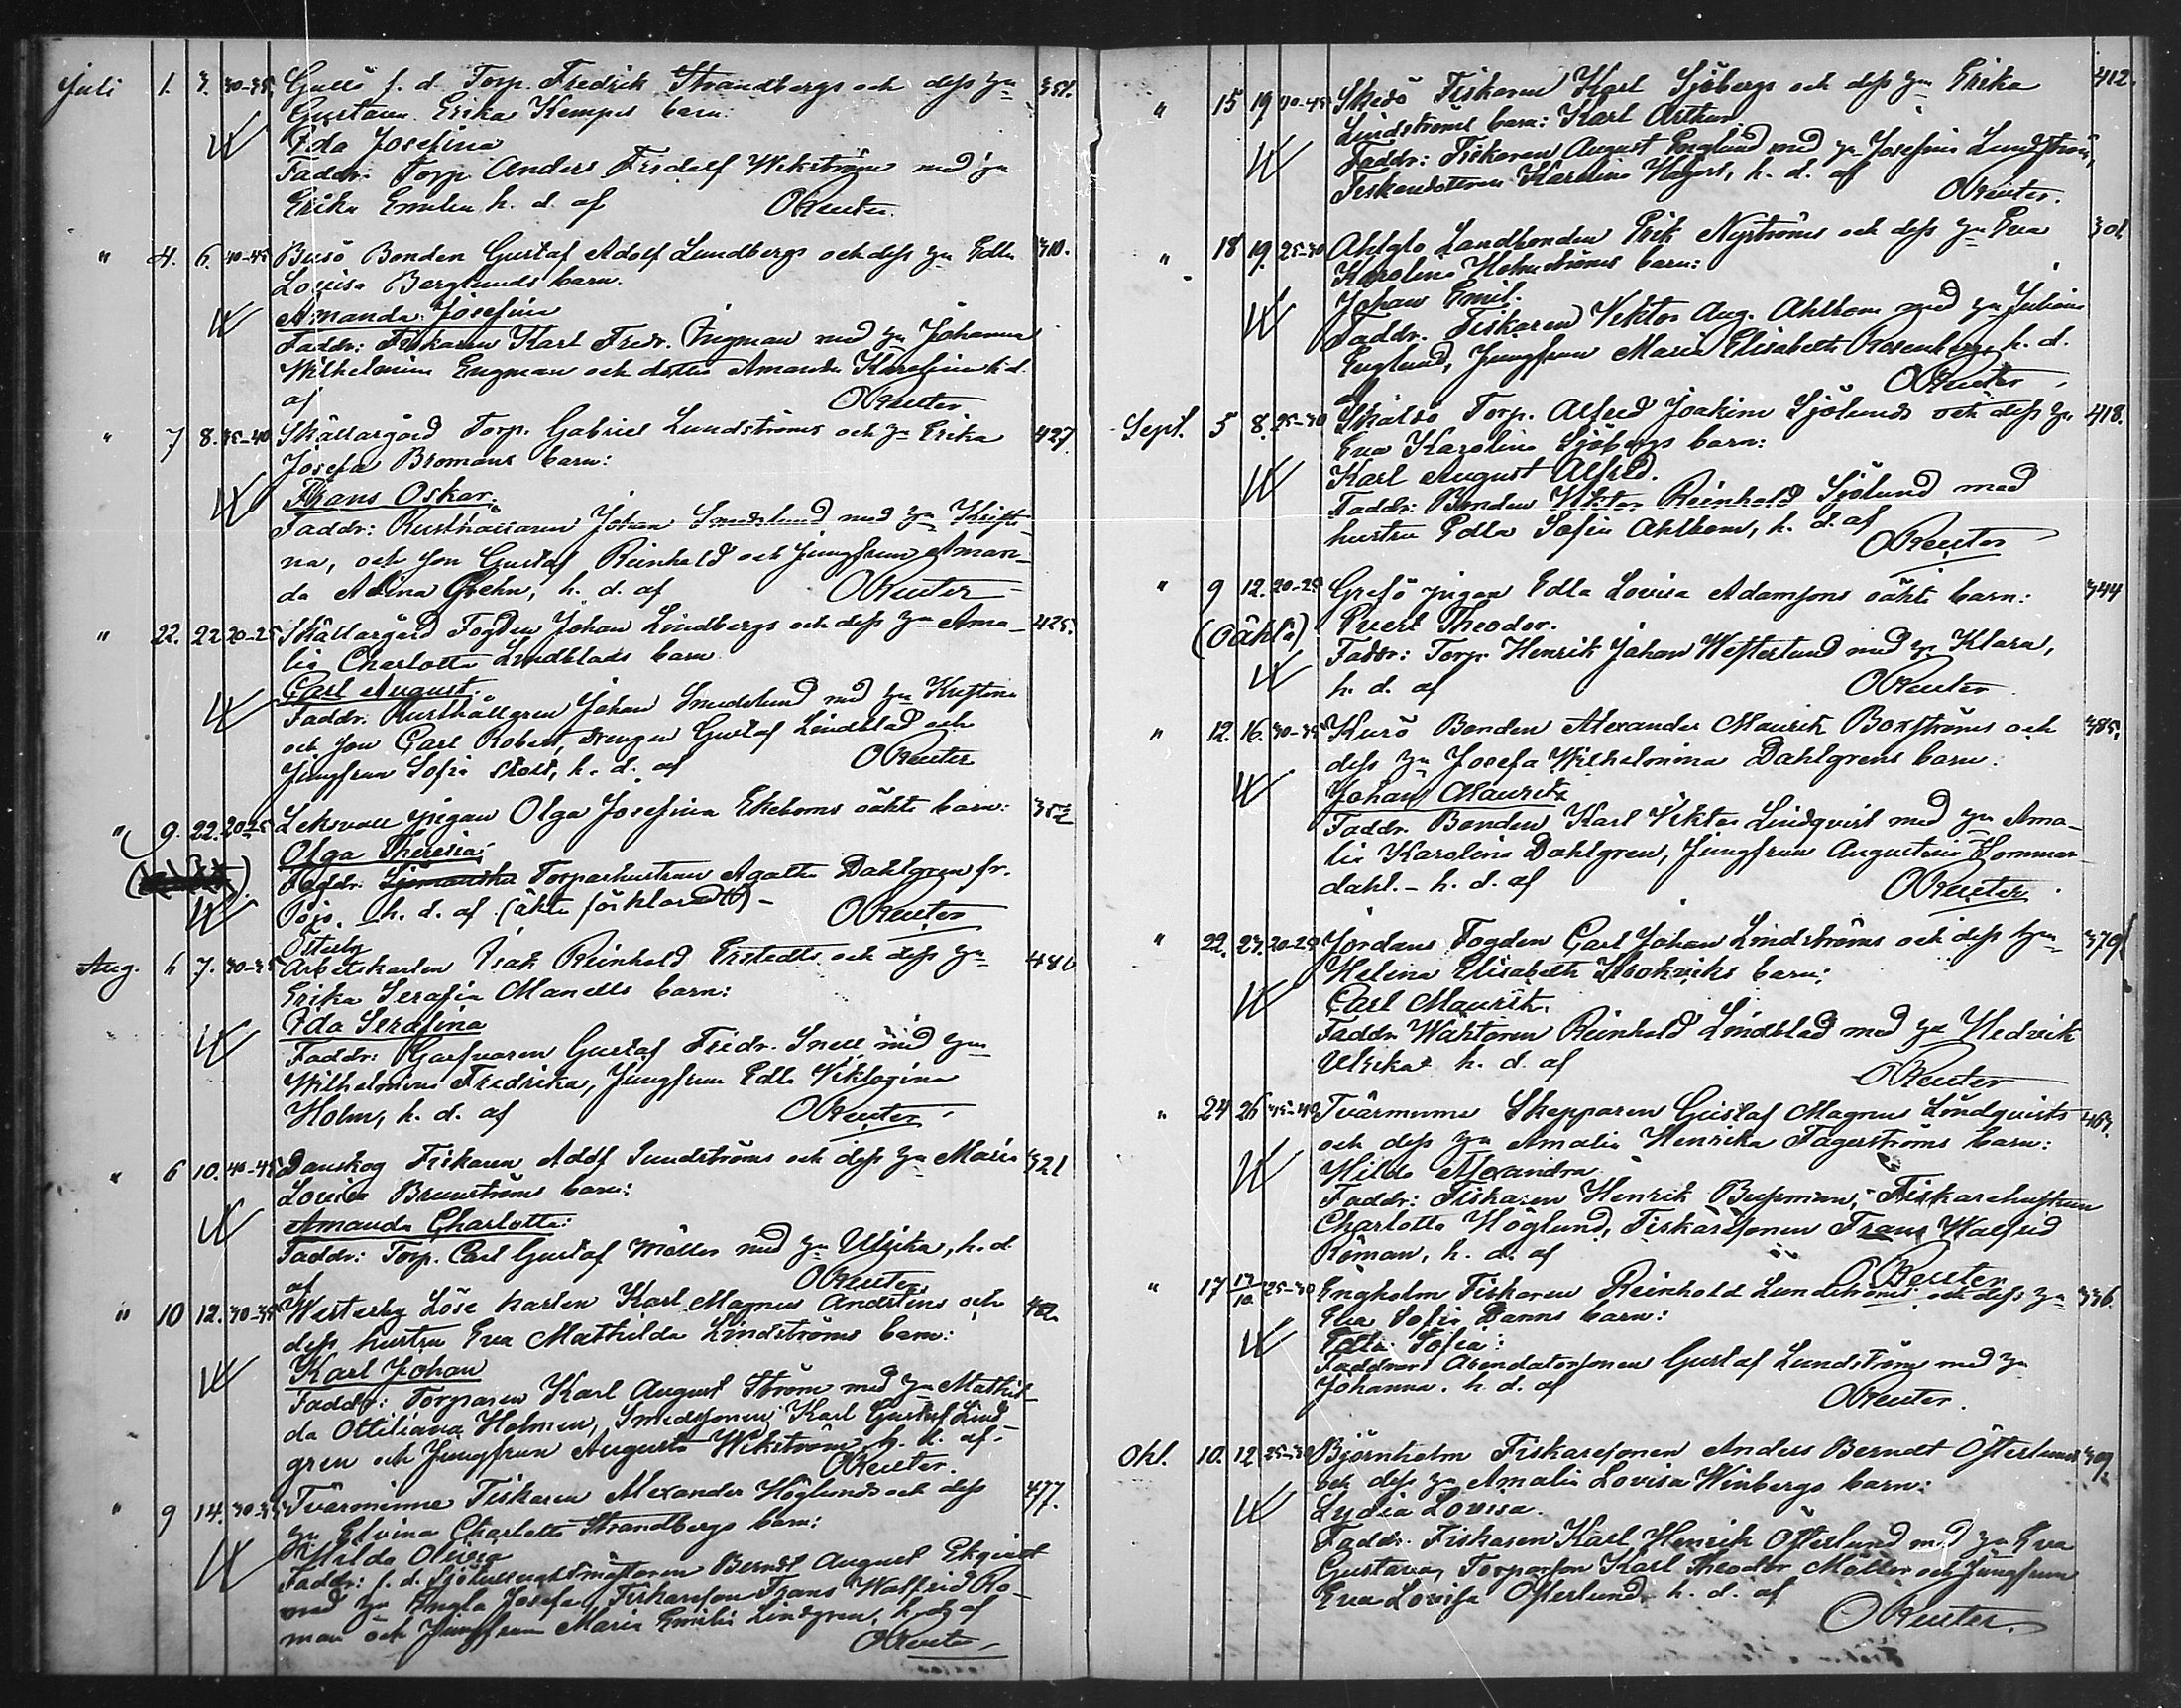 Juli 1. 3. 30-35. Gullö f. d. Torp. Fredrik Strandbergs och dess hu 351.
Gustava Erika Kempes barn:
Ida Josefina
Faddr. Torp. Anders Fridolf Wikström med hu
Erika Emilia h. d. af OReuter.
" 4. 6. 40-45 Busö Bonden Gustaf Adolf Lundbergs och dess hu Edla 310.
Lovisa Berglunds barn.
Amanda Josefina
Faddr: Fiskaren Karl Fredr. Engman med hu Johanna
Wilhelmina Engman och dotter Amanda Karolina h. d.
af OReuter
" 7 8. 35-40 Skällargård Torp. Gabriel Lundströms och hu Erika 427
Josefa Bromans barn:
Frans Oskar.
Faddr: Rusthållaren Johan Smedslund med hu Kristi-
na, och son Gustaf Reinhold och Jungfrun Aman-
da Alina Grehn, h. d. af OReuter
" 22. 22 20-25 Skällargård Fogden Johan Lindbergs och dess hu Ama- 425.
lia Charlotta Lindblads barn
Carl August.
Faddr. Rusthållaren Johan Smedslund med hu Kristina
och son Carl Robert, drengen Gustaf Lindblad och
Jungfrun Sofia h. d. af OReuter
" 9. 22. 20-25 Leksvall pigan Olga Josefina Ekeboms oäkta barn: 352
Olga Theresia.
Faddr. Torparhustrun Agatha Dahlgren fr.
Pojo. h. d. af (äkta förklaradt) - OReuter
Österby
Aug. 6 7. 30-35 Arbetskarlen Isak Reinhold Erstedts och dess hu 480
Erika Serafia Manells barn:
Ida Serafina
Faddr: Garfvaren Gustaf Fredr. Snell med hu
Wilhelmina Fredrika, Jungfrun Edla Viktorina
Holm, h. d. af OReuter
" 6 10. 40-45 Danskog Fiskaren Adolf Sundströms och dess hu Maria 321
Lovisa Brunströms barn:
Amanda Charlotta:
Faddr: Torp. Carl Gustaf Möller med hu Ulrika, h. d.
af OReuter
" 10 12. 30-35 Westerby Löse karlen Karl Magnus Andstens och 482
dess hustru Eva Mathilda Lindströms barn:
Karl Johan
Faddr: Torparen Karl August Ström med hu Mathil-
da Ottiliana Holmen, Smedssonen Karl Gustaf Lind-
gren och Jungfrun Augusta Wikström h. d. af
OReuter.
" 9 14. 30-35 Tvärminne Fiskaren Alexander Höglunds och dess 477.
hu Elvina Charlotta Strandbergs barn:
Hilda Olivia
Faddr: f. d. Sjötullvaktmästaren Berndt August Ekqvist
med hu Angla Josefa, Fiskareson Frans Walfrid Ro-
man och Jungfrun Maria Emilia Lindgren, h. d. af
OReuter
" 15 19 40-45 Skedö Fiskaren Karl Sjöbergs och dess hu Erika 412.
Lindströms barn: Karl Arthur
Faddr: Fiskaren August Englund med hu Josefina Lundström,
Fiskaredottren Karolina h. d. af
OReuter.
" 18 19. 25-30 Ahlglo Landbonden Erik Nyströms och dess hu Eva 301
Karolina Holmströms barn:
Johan Emil.
Faddr. Fiskaren Viktor Aug. Ahlbom med hu Juliana
Englund, Jungfrun Maria Elisabeth Rosenberg, h. d.
af OReuter
Sept. 5 8. 25-30 Skåldö Torp. Alfred Joakim Sjölunds och dess hu 418.
Eva Karolina Sjöbergs barn:
Karl August Alfred.
Faddr: Bonden Viktor Reinhold Sjölund med
hustru Edla Sofia Ahlbom, h. d. af
OReuter
" 9 12. 20-25 Grefsö pigan Edla Lovisa Adamssons oäkta barn: 344
(Oäkta) Evert Theodor.
Faddr: Torp. Henrik Johan Westerlund med hu Klara,
h. d. af OReuter
" 12. 16. 30-35 Kurö Bonden Alexander Maurits Boxströms och 405.
dess hu Josefa Wilhelmina Dahlgrens barn:
Johan Maurits
Faddr. Bonden Karl Viktor Lindqvist med hu Ama-
lia Karolina Dahlgren, Jungfrun Augustina Hommar-
dahl. - h. d. af OReuter
" 22. 23. 20-25 Jordans Fogden Carl Johan Lindströms och dess hu 379
Helina Elisabeth Krokviks barn:
Carl Maurits.
Faddr. Waktaren Reinhold Lindblad med hu Hedvik
Ulrika h. d. af
OReuter
" 24 26 35-40 Tvärminne Skepparen Gustaf Magnus Lindqvists 467.
och dess hu Amalia Henrika Fagerströms barn:
Hilda Alexandra
Faddr: Fiskaren Henrik Bussman, Fiskarehustrun
Charlotta Höglund, Fiskaresonen Frans Walfrid
Röman, h. d. af
OReuter
" 17 17/10 25-30 Engholm Fiskaren Reinhold Lundströms och dess hu 336.
Eva Sofia Danns barn:
Edla Sofia:
Faddrar: Arendatorsonen Gustaf Lundström med hu
Johanna. h. d. af OReuter.
Okt. 10. 12 25-30 Björnholm Fiskaresonen Anders Berndt Österlunds 309.
och dess hu Amalia Lovisa Winbergs barn:
Lydia Lovisa.
Faddr. Fiskaren Karl Henrik Österlund med hu Eva
Gustava, Torparson Karl Theodor Möller och Jungfrun
Eva Lovisa Österlund h. d. af
OReuter.